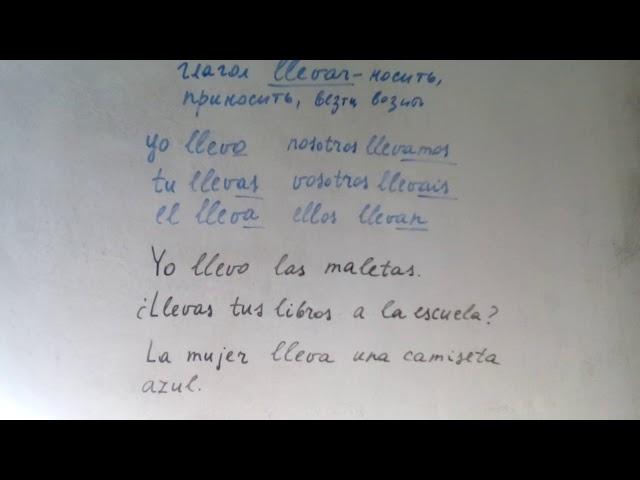 глагол llevar - носить,
приносить, везти возить
yo llevo nosotros llevamos
tu llevas vosotros llevais
el lleva ellos llevan
Yo llevo las maletas.
¿Llevas tus libros a la escuela?
La mujer lleva una camiseta
azul.